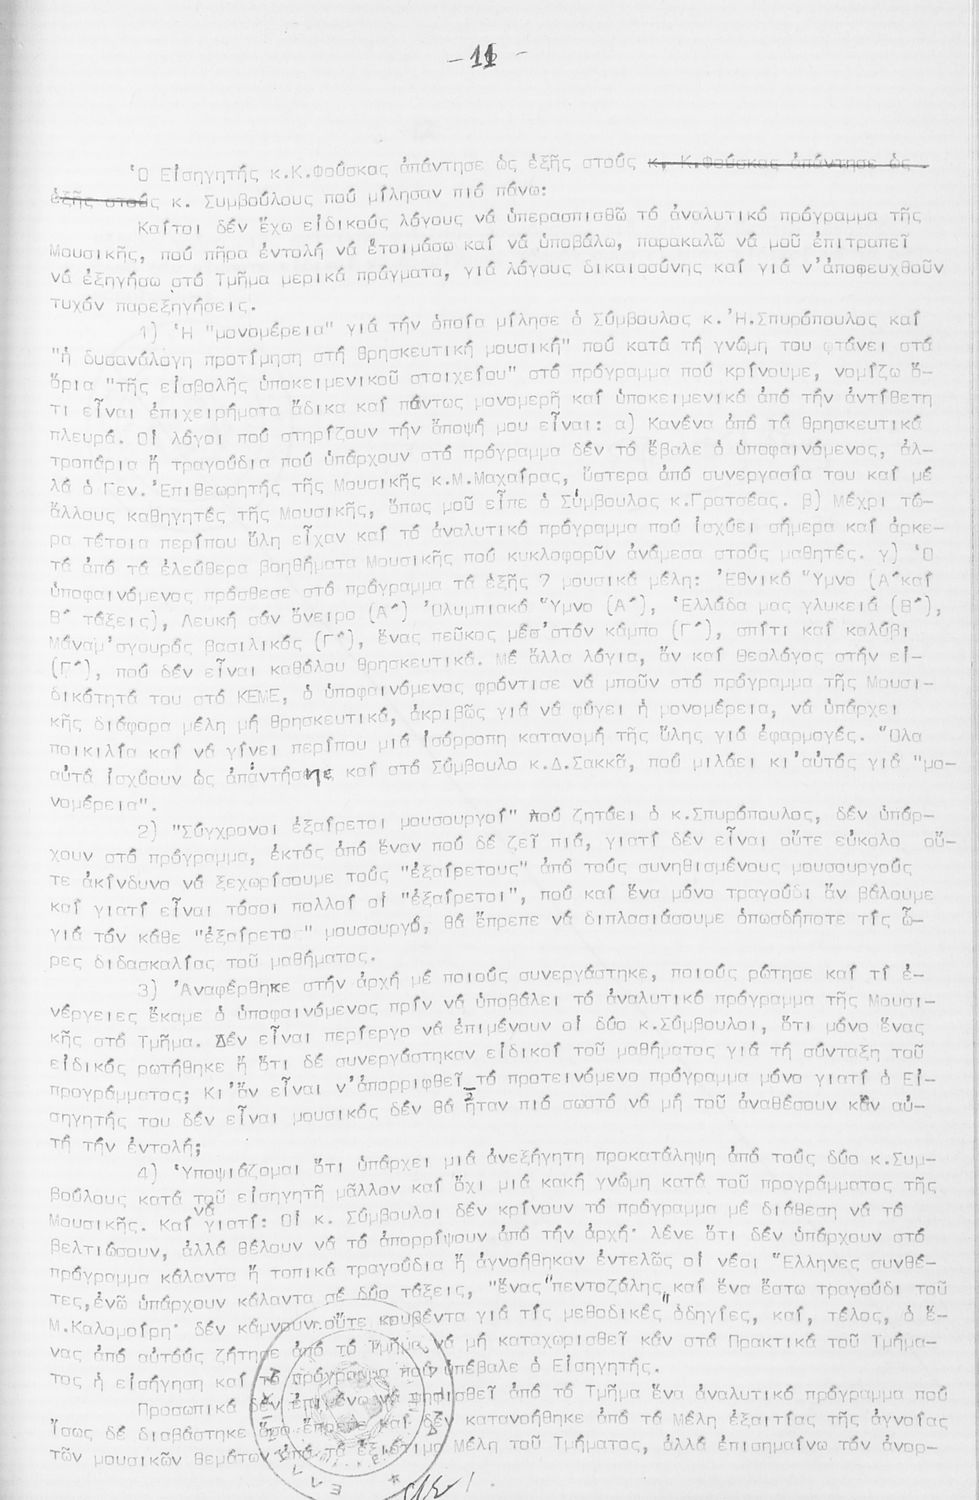 - 11 -
Ὁ Εἰσηγητής κ.Κ.Φούσκας ἀπάντησε ὡς ἑξῆς στούς κ. Κ.Φούσκας ἀπάντησε ὡς
ἑξῆς στούς κ. Συμβούλους πού μίλησαν πιό πάνω:
Καίτοι δέν ἔχω εἰδικούς λόγους νά ὑπερασπισθῶ τό ἀναλυτικό πρόγραμμα τῆς
Μουσικῆς, πού πῆρα ἐντολή νά ἑτοιμάσω καί νά ὑποβάλω, παρακαλῶ νά μοῦ ἐπιτραπεῖ
νά ἐξηγήσω στό Τμῆμα μερικά πράγματα, γιά λόγους δικαιοσύνης καί γιά ν'ἀποφευχθοῦν
τυχόν παρεξηγήσεις.
1) Ἡ "μονομέρεια" γιά τήν ὁποία μίλησε ὁ Σύμβουλος κ.Ἠ.Σπυρόπουλος καί
"ἡ δυσανάλογη προτίμηση στή θρησκευτική μουσική" πού κατά τή γνώμη του φτάνει στά
ὅρια "τῆς εἰσβολῆς ὑποκειμενικοῦ στοιχείου" στό πρόγραμμα πού κρίνουμε, νομίζω ὅ-
τι εἶναι ἐπιχειρήματα ἄδικα καί πάντως μονομερῆ καί ὑποκειμενικά ἀπό τήν ἀντίθετη
πλευρά. Οἱ λόγοι πού στηρίζουν τήν ἄποψή μου εἶναι: α) Κανένα ἀπό τά θρησκευτικά
τροπάρια ἤ τραγούδια πού ὑπάρχουν στό πρόγραμμα δέν τό ἔβαλε ὁ ὑποφαινόμενος, ἀλ-
λά ὁ Γεν.Ἐπιθεωρητής τῆς Μουσικῆς κ.Μ.Μαχαίρας, ὕστερα ἀπό συνεργασία του καί μέ
ἄλλους καθηγητές τῆς Μουσικῆς, ὅπως μοῦ εἶπε ὁ Σύμβουλος κ.Γρατσέας. β) Μέχρι τώ-
ρα τέτοια περίπου ὕλη εἶχαν καί τό ἀναλυτικό πρόγραμμα πού ἰσχύει σήμερα καί ἀρκε-
τά ἀπό τά ἐλεύθερα βοηθήματα Μουσικῆς πού κυκλοφοροῦν ἀνάμεσα στούς μαθητές. γ) Ὁ
ὑποφαινόμενος πρόσθεσε στό πρόγραμμα τά ἑξῆς 7 μουσικά μέλη: Ἐθνικό Ὕμνο (Α΄καί
Β΄ τάξεις), Λευκή σάν ὄνειρο (Α΄) Ὀλυμπιακό Ὕμνο (Α΄), Ἑλλάδα μας γλυκειά (Β΄),
Μάναμ'σγουρός βασιλικός (Γ΄), ἕνας πεῦκος μέσ'στόν κάμπο (Γ΄), σπίτι καί καλύβι
(Γ΄), πού δέν εἶναι καθόλου θρησκευτικά. Μέ ἄλλα λόγια, ἄν καί Θεολόγος στήν εἰ-
δικότητά του στό ΚΕΜΕ, ὁ ὑποφαινόμενος φρόντισε νά μποῦν στό πρόγραμμα τῆς Μουσι-
κῆς διάφορα μέλη μή θρησκευτικά, ἀκριβῶς γιά νά φύγει ἡ μονομέρεια, νά ὑπάρχει
ποικιλία καί νά γίνει περίπου μιά ἰσόρροπη κατανομή τῆς ὕλης γιά ἐφαρμογές. Ὅλα
αὐτά ἰσχύουν ὡς ἀπάντησή καί στό Σύμβουλο κ.Δ.Σακκᾶ, πού μιλάει κι'αὐτός γιά "μο-
νομέρεια".
2) "Σύγχρονοι ἐξαίρετοι μουσουργοί" πού ζητάει ὁ κ.Σπυρόπουλος, δέν ὑπάρ-
χουν στό πρόγραμμα, ἐκτός ἀπό ἕναν πού δέ ζεῖ πιά, γιατί δέν εἶναι οὔτε εὔκολο οὔ-
τε ἀκίνδυνο νά ξεχωρίσουμε τούς "ἐξαίρετους" ἀπό τούς συνηθισμένους μουσουργούς
καί γιατί εἶναι τόσοι πολλοί οἱ "ἐξαίρετοι", πού καί ἕνα μόνο τραγούδι ἄν βάλουμε
γιά τόν κάθε "ἐξαίρετο" μουσουργό, θά ἔπρεπε νά διπλασιάσουμε ὁπωσδήποτε τίς ὧ-
ρες διδασκαλίας τοῦ μαθήματος.
3) Ἀναφέρθηκε στήν ἀρχή μέ ποιούς συνεργάστηκε, ποιούς ρώτησε καί τί ἐ-
νέργειες ἔκαμε ὁ ὑποφαινόμενος πρίν νά ὑποβάλει τό ἀναλυτικό πρόγραμμα τῆς Μουσι-
κῆς στό Τμῆμα. Δέν εἶναι περίεργο νά ἐπιμένουν οἱ δύο κ.Σύμβουλοι, ὅτι μόνο ἕνας
εἰδικός ρωτήθηκε ἤ ὅτι δέ συνεργάστηκαν εἰδικοί τοῦ μαθήματος γιά τή σύνταξη τοῦ
προγράμματος; Κι'ἄν εἶναι ν'ἀπορριφθεῖ τό προτεινόμενο πρόγραμμα μόνο γιατί ὁ Εἰ-
σηγητής του δέν εἶναι μουσικός δέν θά ἦταν πιό σωστό νά μή τοῦ ἀναθέσουν κἄν αὐ-
τή τήν ἐντολή;
4) Ὑποψιάζομαι ὅτι ὑπάρχει μιά ἀνεξήγητη προκατάληψη ἀπό τούς δύο κ.Συμ-
βούλους κατά τοῦ εἰσηγητῆ μᾶλλον καί ὄχι μιά κακή γνώμη κατά τοῦ προγράμματος τῆς
Μουσικῆς. Καί νά γιατί: Οἱ κ. Σύμβουλοι δέν κρίνουν τό πρόγραμμα μέ διάθεση νά τό
βελτιώσουν, ἀλλά θέλουν νά τό ἀπορρίψουν ἀπό τήν ἀρχή· λένε ὅτι δέν ὑπάρχουν στό
πρόγραμμα κάλαντα ἤ τοπικά τραγούδια ἤ ἀγνοήθηκαν ἐντελῶς οἱ νέοι Ἕλληνες συνθέ-
τες,ἐνῶ ὑπάρχουν κάλαντα σέ δύο τάξεις, "ἕνας "πεντοζάλης" καί ἕνα ἔστω τραγούδι τοῦ
Μ.Καλομοίρη· δέν κάμνουν οὔτε κουβέντα γιά τίς μεθοδικές ὁδηγίες, καί, τέλος, ὁ ἕ-
νας ἀπό αὐτούς ζήτησε ἀπό τό Τμῆμα νά μή καταχωρισθεῖ κἄν στά Πρακτικά τοῦ Τμήμα-
τος ἡ εἰσήγηση καί τό πρόγραμμα πού ὑπέβαλε ὁ Εἰσηγητής.
Προσωπικά δέν ἐπιμένω νά ψηφισθεῖ ἀπό τό Τμῆμα ἕνα ἀναλυτικό πρόγραμμα πού
ἴσως δέ διαβάστηκε ὅσο ἔπρεπε καί δέν κατανοήθηκε ἀπό τά Μέλη ἐξαιτίας τῆς ἄγνοιας
τῶν μουσικῶν θεμάτων ἀπό τά ἀξιότιμα Μέλη τοῦ Τμήματος, ἀλλά ἐπισημαίνω τόν ἀνορ-